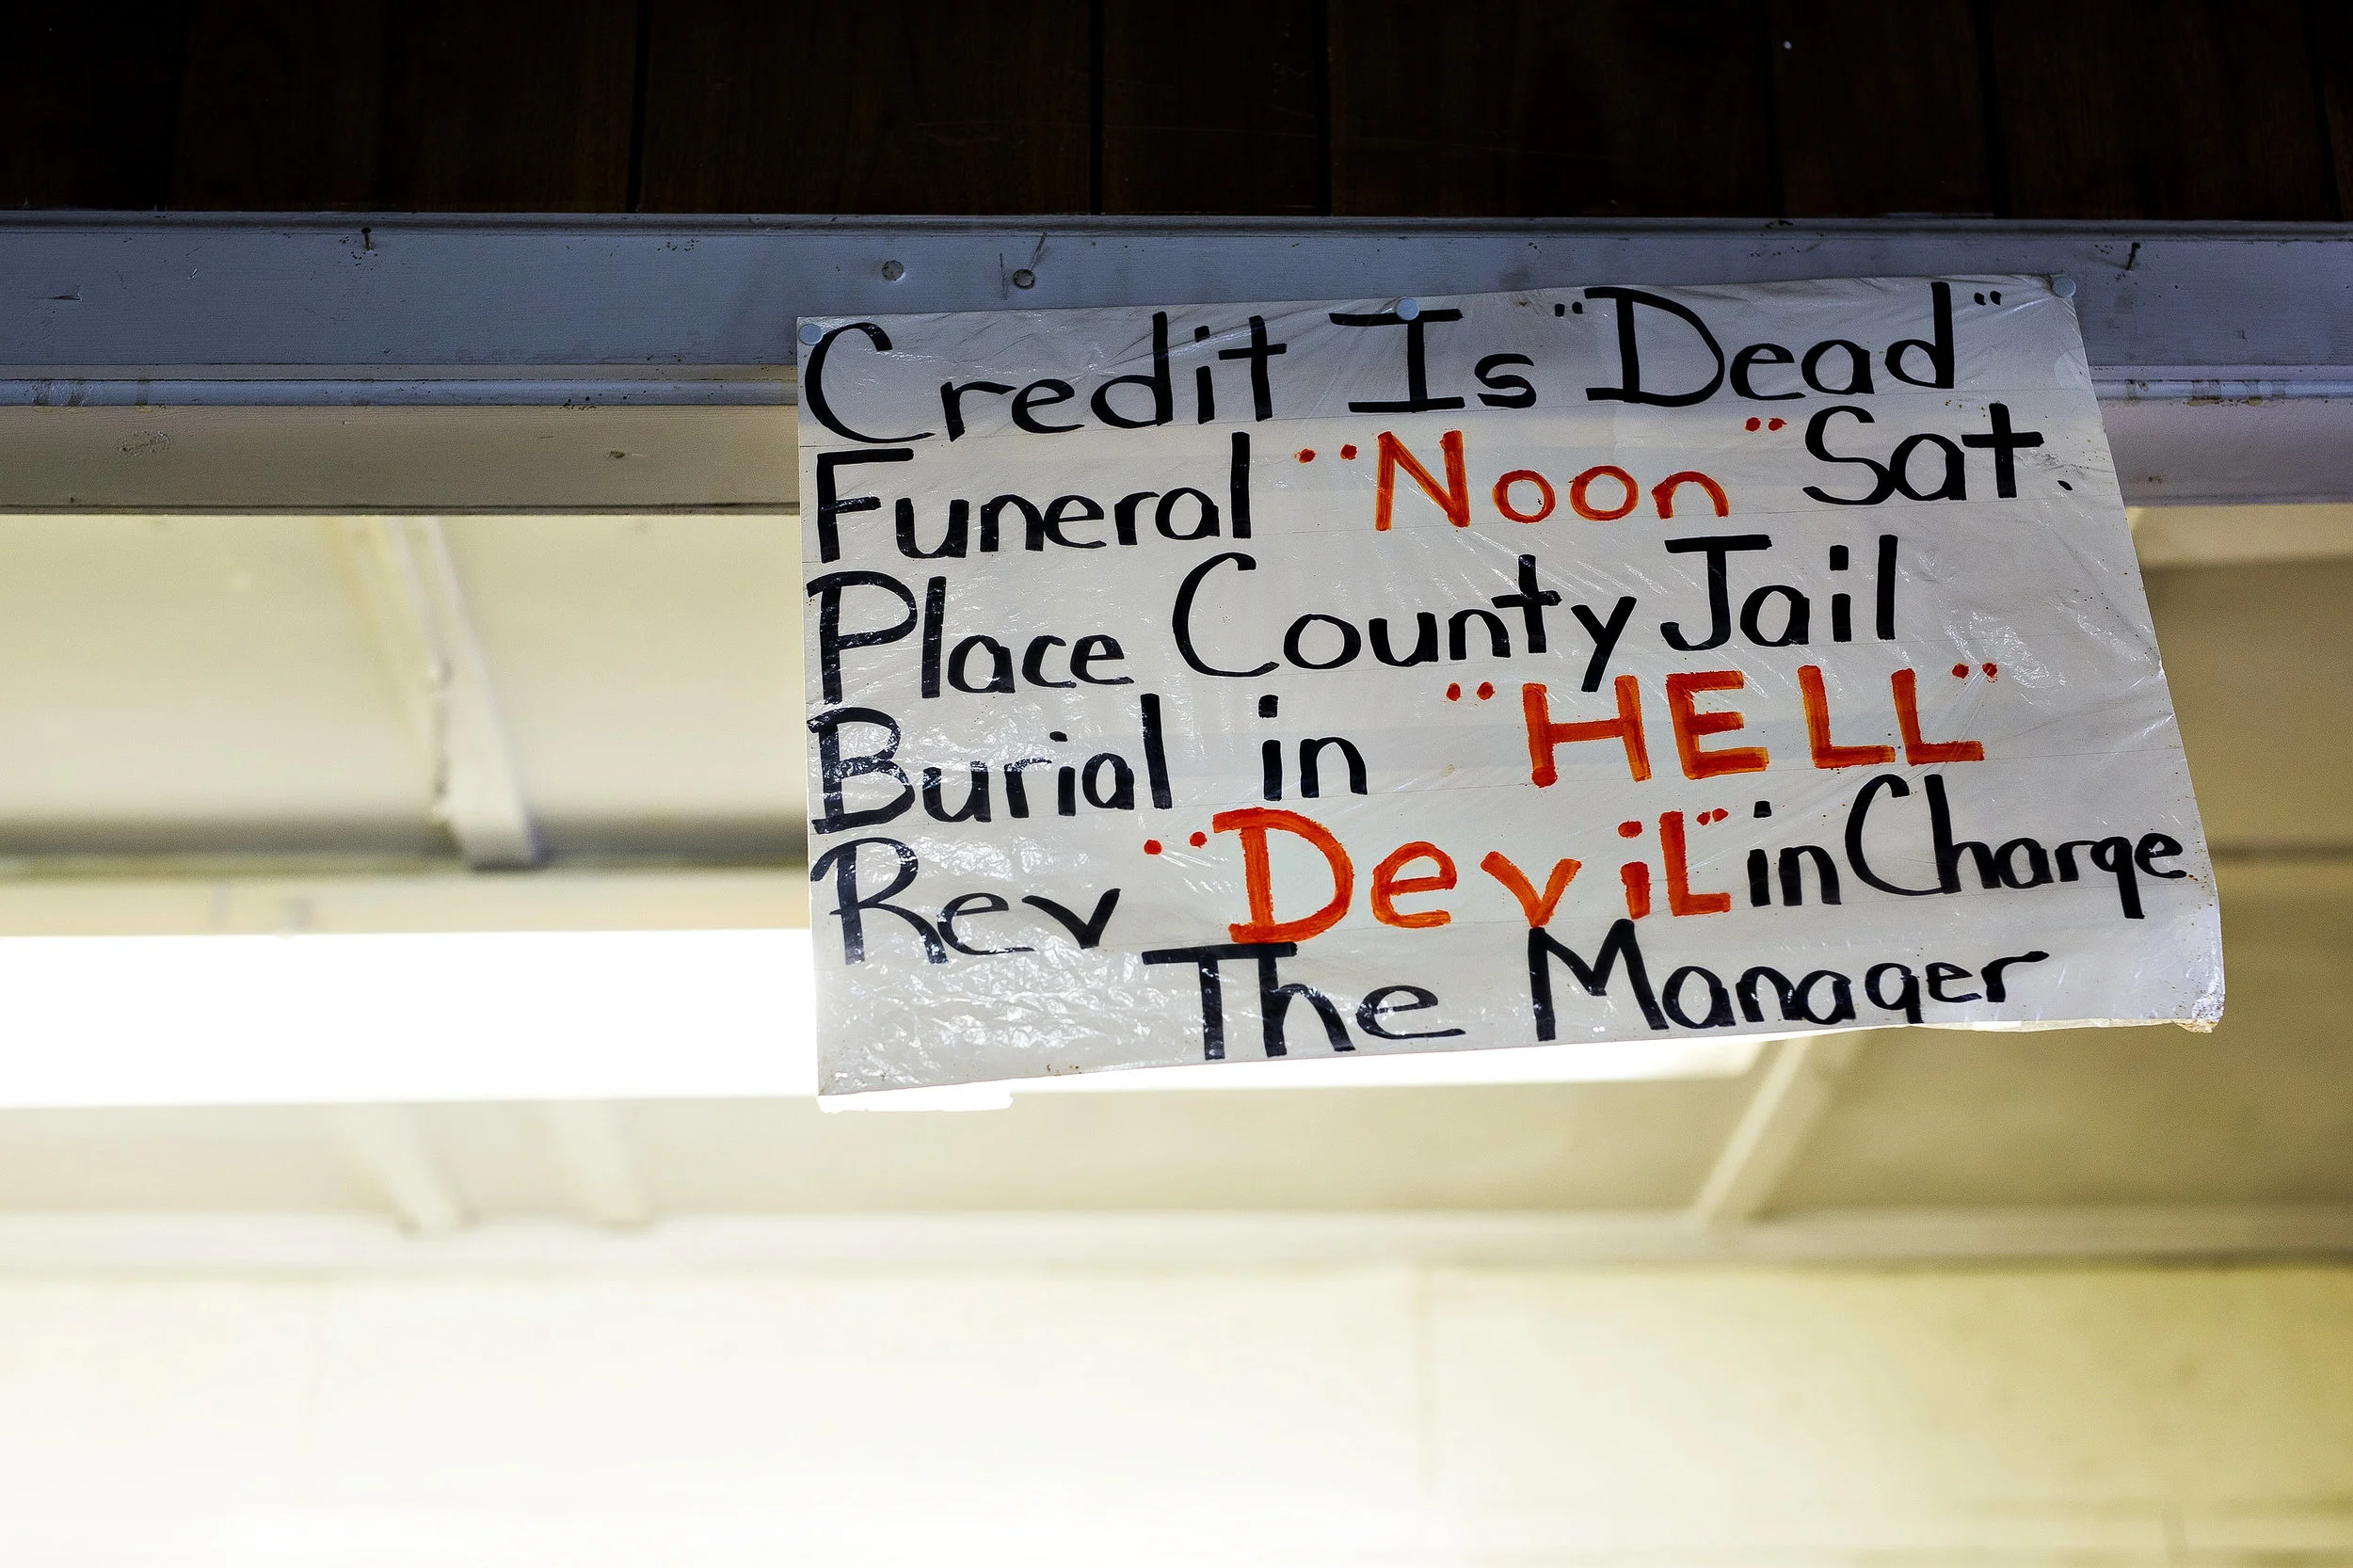 Credit Is "Dead"
Funeral "Noon" Sat.
Place County Jail
Burial in "HELL"
Rev "Devil" in Charge
The Manager